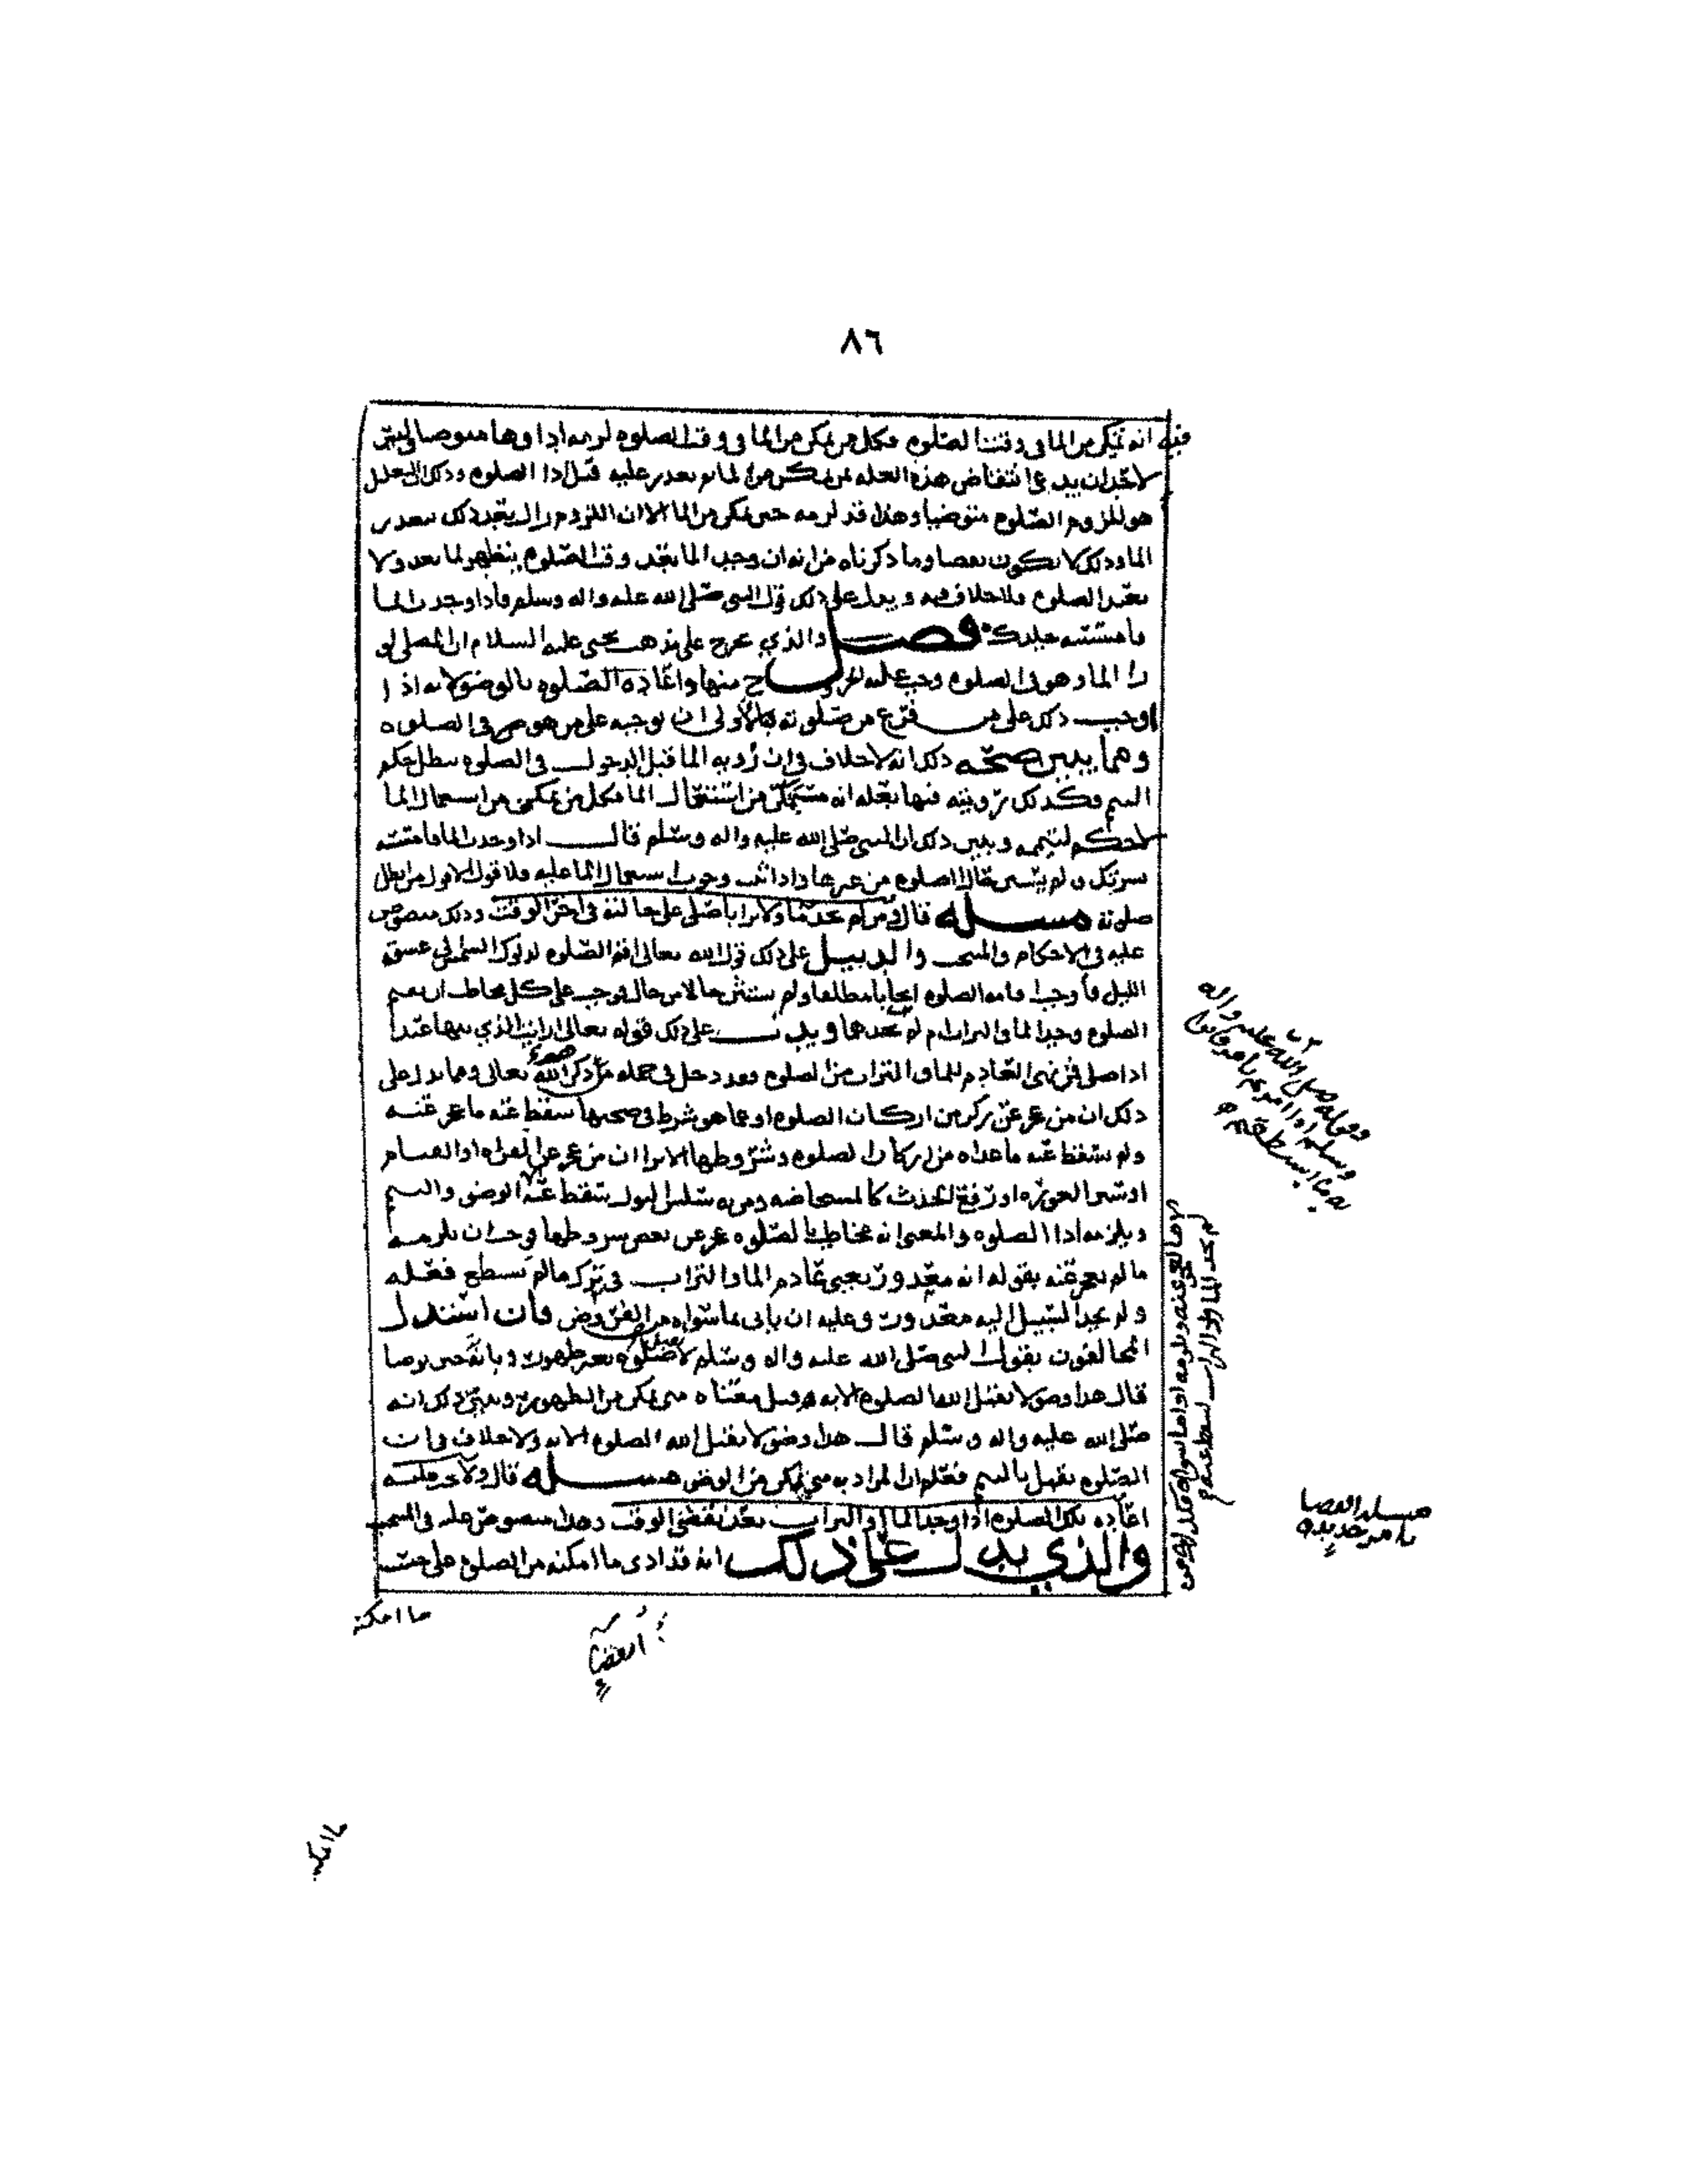 ٨٦
فيه انه تمكن من الما في وقت الصلوة فكل من تمكن من الما في وقت الصلوة لزمه اداوها متوضيا وليس
لاحد ان يدعي انتقاض هذه العله بمن تمكن من الما ثم تعذر عليه قبل ادا الصلوة وذلك ان التعليل
هو للزوم الصلوة متوضيا وهذا قد لزمه حين تمكن من الما الا ان اللزوم زال بتجدد ذلك تعذر
الما وذلك لا يكون نقضا وما ذكرناه من انه ان وجد الما بعد وقت الصلوة يتطهر لما بعد ولا
يعيد الصلوة فلا خلاف فيه ويدل على ذلك قول النبي صلى الله عليه واله وسلم فاذا وجدت الما
فامسسه جلدك فصل والذي يخرج على مذهب يحيى عليه السلام ان المصلي لو
را الما وهو في الصلوة وجب عليه الخروج منها واعادة الصلوة بالوضو لانه اذا
اوجب ذلك على من فرغ من صلوته فبالاولى ان يوجبه على من هو في الصلوة
ومما يبين صحه ذلك انه لا خلاف في ان رؤية الما قبل الدخول في الصلوة يبطل حكم
التيمم وكذلك رؤيته فيها بعله انه متمكن من استعمال الما فكل من تمكن من استعمال الما
لا حكم لتيممه ويبين ذلك ان النبي صلى الله عليه واله وسلم قال اذا وجدت الما فامسسه
بشرتك ولم يستثن حال الصلوة من غيرها واذا ثبت وجوب استعمال الما عليه فلا قول الا قول من ابطل
صلوته مسله قال ومن لم يجد ما ولا ترابا صلى على حالته في اخر الوقت وذلك منصوص
عليه في الاحكام والمنتخب والدليل على ذلك قول الله تعالى اقم الصلوة لدلوك الشمس الى غسق
الليل فاوجب اقامه الصلوة ايجابا مطلقا ولم يستثن حالا من حال فوجب على كل مخاطب ان يقيم
الصلوة وجد الما والتراب ام لم يجدهما ويدل على ذلك قوله تعالى ارايت الذي ينهى عبدا
اذا صلى فمن نهى العادم للما والتراب من الصلوة فقد دخل في جمله من ذكره الله تعالى ومما يدل على
ذلك ان من عجز عن ركن من اركان الصلوة او عما هو شرط في صحتها سقط عنه ما عجز عنه
ولم يسقط عنه ما عداه من اركان الصلوة وشروطها الا ترا ان من عجز عن القراه او القيام
او ستر العوره او رفع الحدث كالمستحاضه ومن به سلس البول سقط عنه الوضو والتيمم
ويلزمه ادا الصلوه والمعنى انه مخاطب بالصلوه عجز عن بعض شروطها فوجب ان يلزمه
ما لم يعجز عنه بقوله انه معذور يعني عادم الما والتراب في ترك ما لم يستطع فعله
ولم يجد السبيل اليه معذور وعليه ان ياتي بما سواه من الفروض فان استدل
المخالفون بقول النبي صلى الله عليه واله وسلم لا صلوة بغير طهور وبانه حين توضا
قال هذا وضو لا يقبل الله الصلوة الا به قيل معناه متى تمكن من الطهور ويبين ذلك انه
صلى الله عليه واله وسلم قال هذا وضو لا يقبل الله الصلوة الا به ولا خلاف في ان
الصلوة تقبل بالتيمم فعلم ان المراد به متى تمكن من الوضو مسله قال ولا يجب عليه
اعادة تلك الصلوة اذا وجد الما او التراب بعد تقضي الوقت وهذا منصوص عليه في المنتخب
والذي يدل على ذلك انه قد ادى ما امكنه من الصلوة على حسب
ما امكنه
وقوله صلى الله عليه واله
وسلم اذا امرتم بامر فاتوا
به ما استطعتم
مسله القضا
بامر جديد
ما امكنه